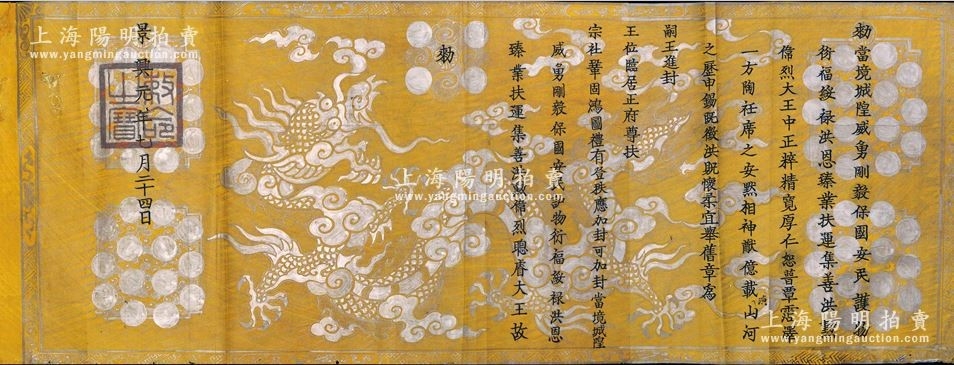 勑當境城隍威勇剛毅保國安民護物
衍福綏禄洪恩臻業扶運集善洪勳
偉烈大王中正粹精寬厚仁恕普覃霑澤
一方陶衽席之安默相神猷億載山河
之歷申錫既徵洪貺懷柔宜舉舊章爲
嗣王進封
王位臨居正府尊扶
宗社鞏固鴻圖禮有登秩應加封可加封當境城隍
威勇剛毅保國安民護物衍福綏禄洪恩
臻業扶運集善洪勳偉烈聰睿大王故
勑
景興年七月二十四日
敕命之寶
上海陽明拍賣
www.yangmingauction.com
上海陽明拍賣
www.yangmingauction.com
上海陽明拍賣
www.yangmingauction.com